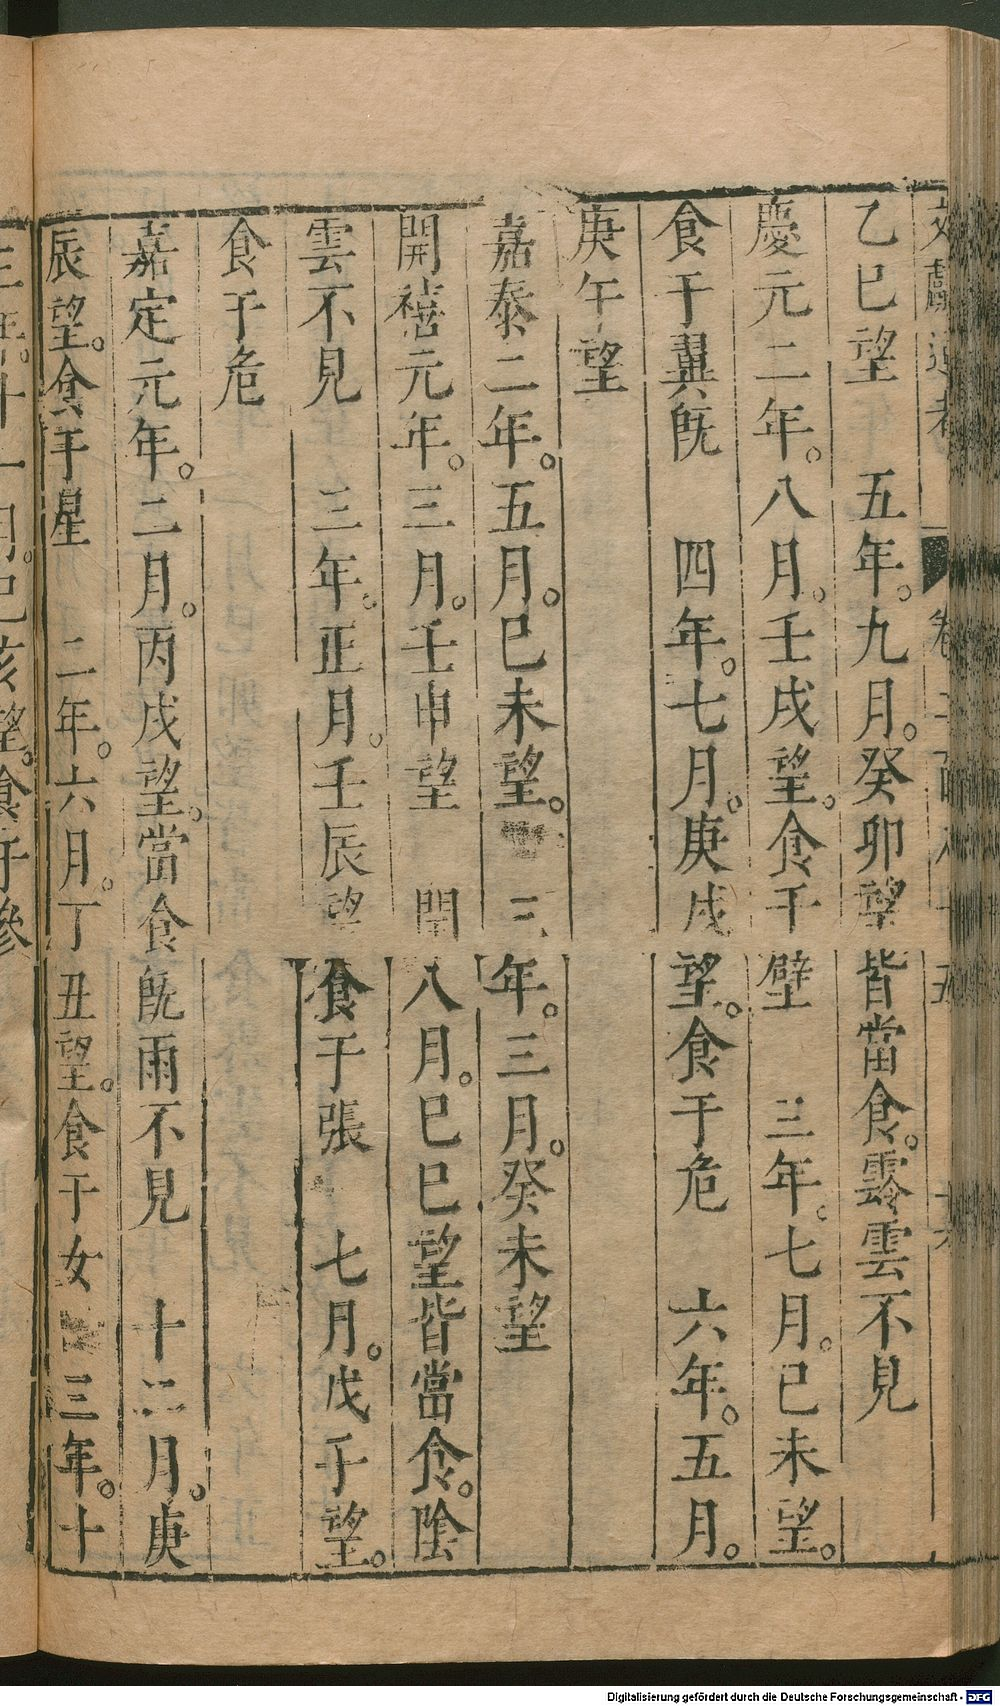 乙巳望　五年。九月。癸卯望皆當食。霠雲不見
慶元二年。八月。壬戌望。食于壁　三年。七月。己未望。
食于翼旣　四年。七月。庚戌望。食于危　六年。五月。
庚午望
嘉泰二年。五月。已未望。　三年。三月。癸未望
開禧元年。三月。壬申望　閏八月。巳巳望皆當食。陰
雲不見　三年。正月。壬辰望食于張　七月。戊子望。
食于危
嘉定元年。二月。丙戌望。當食旣雨不見　十二月。庚
辰望。食于星　二年。六月。丁丑望。食于女　三年。十
Digitalisierung gefördert durch die Deutsche Forschungsgemeinschaft - DFG